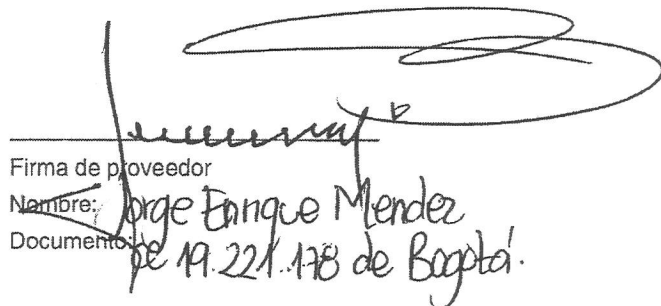 Firma de proveedor
Nombre: Jorge Enrique Mendez
Documento: cc 19.221.178 de Bogotá.